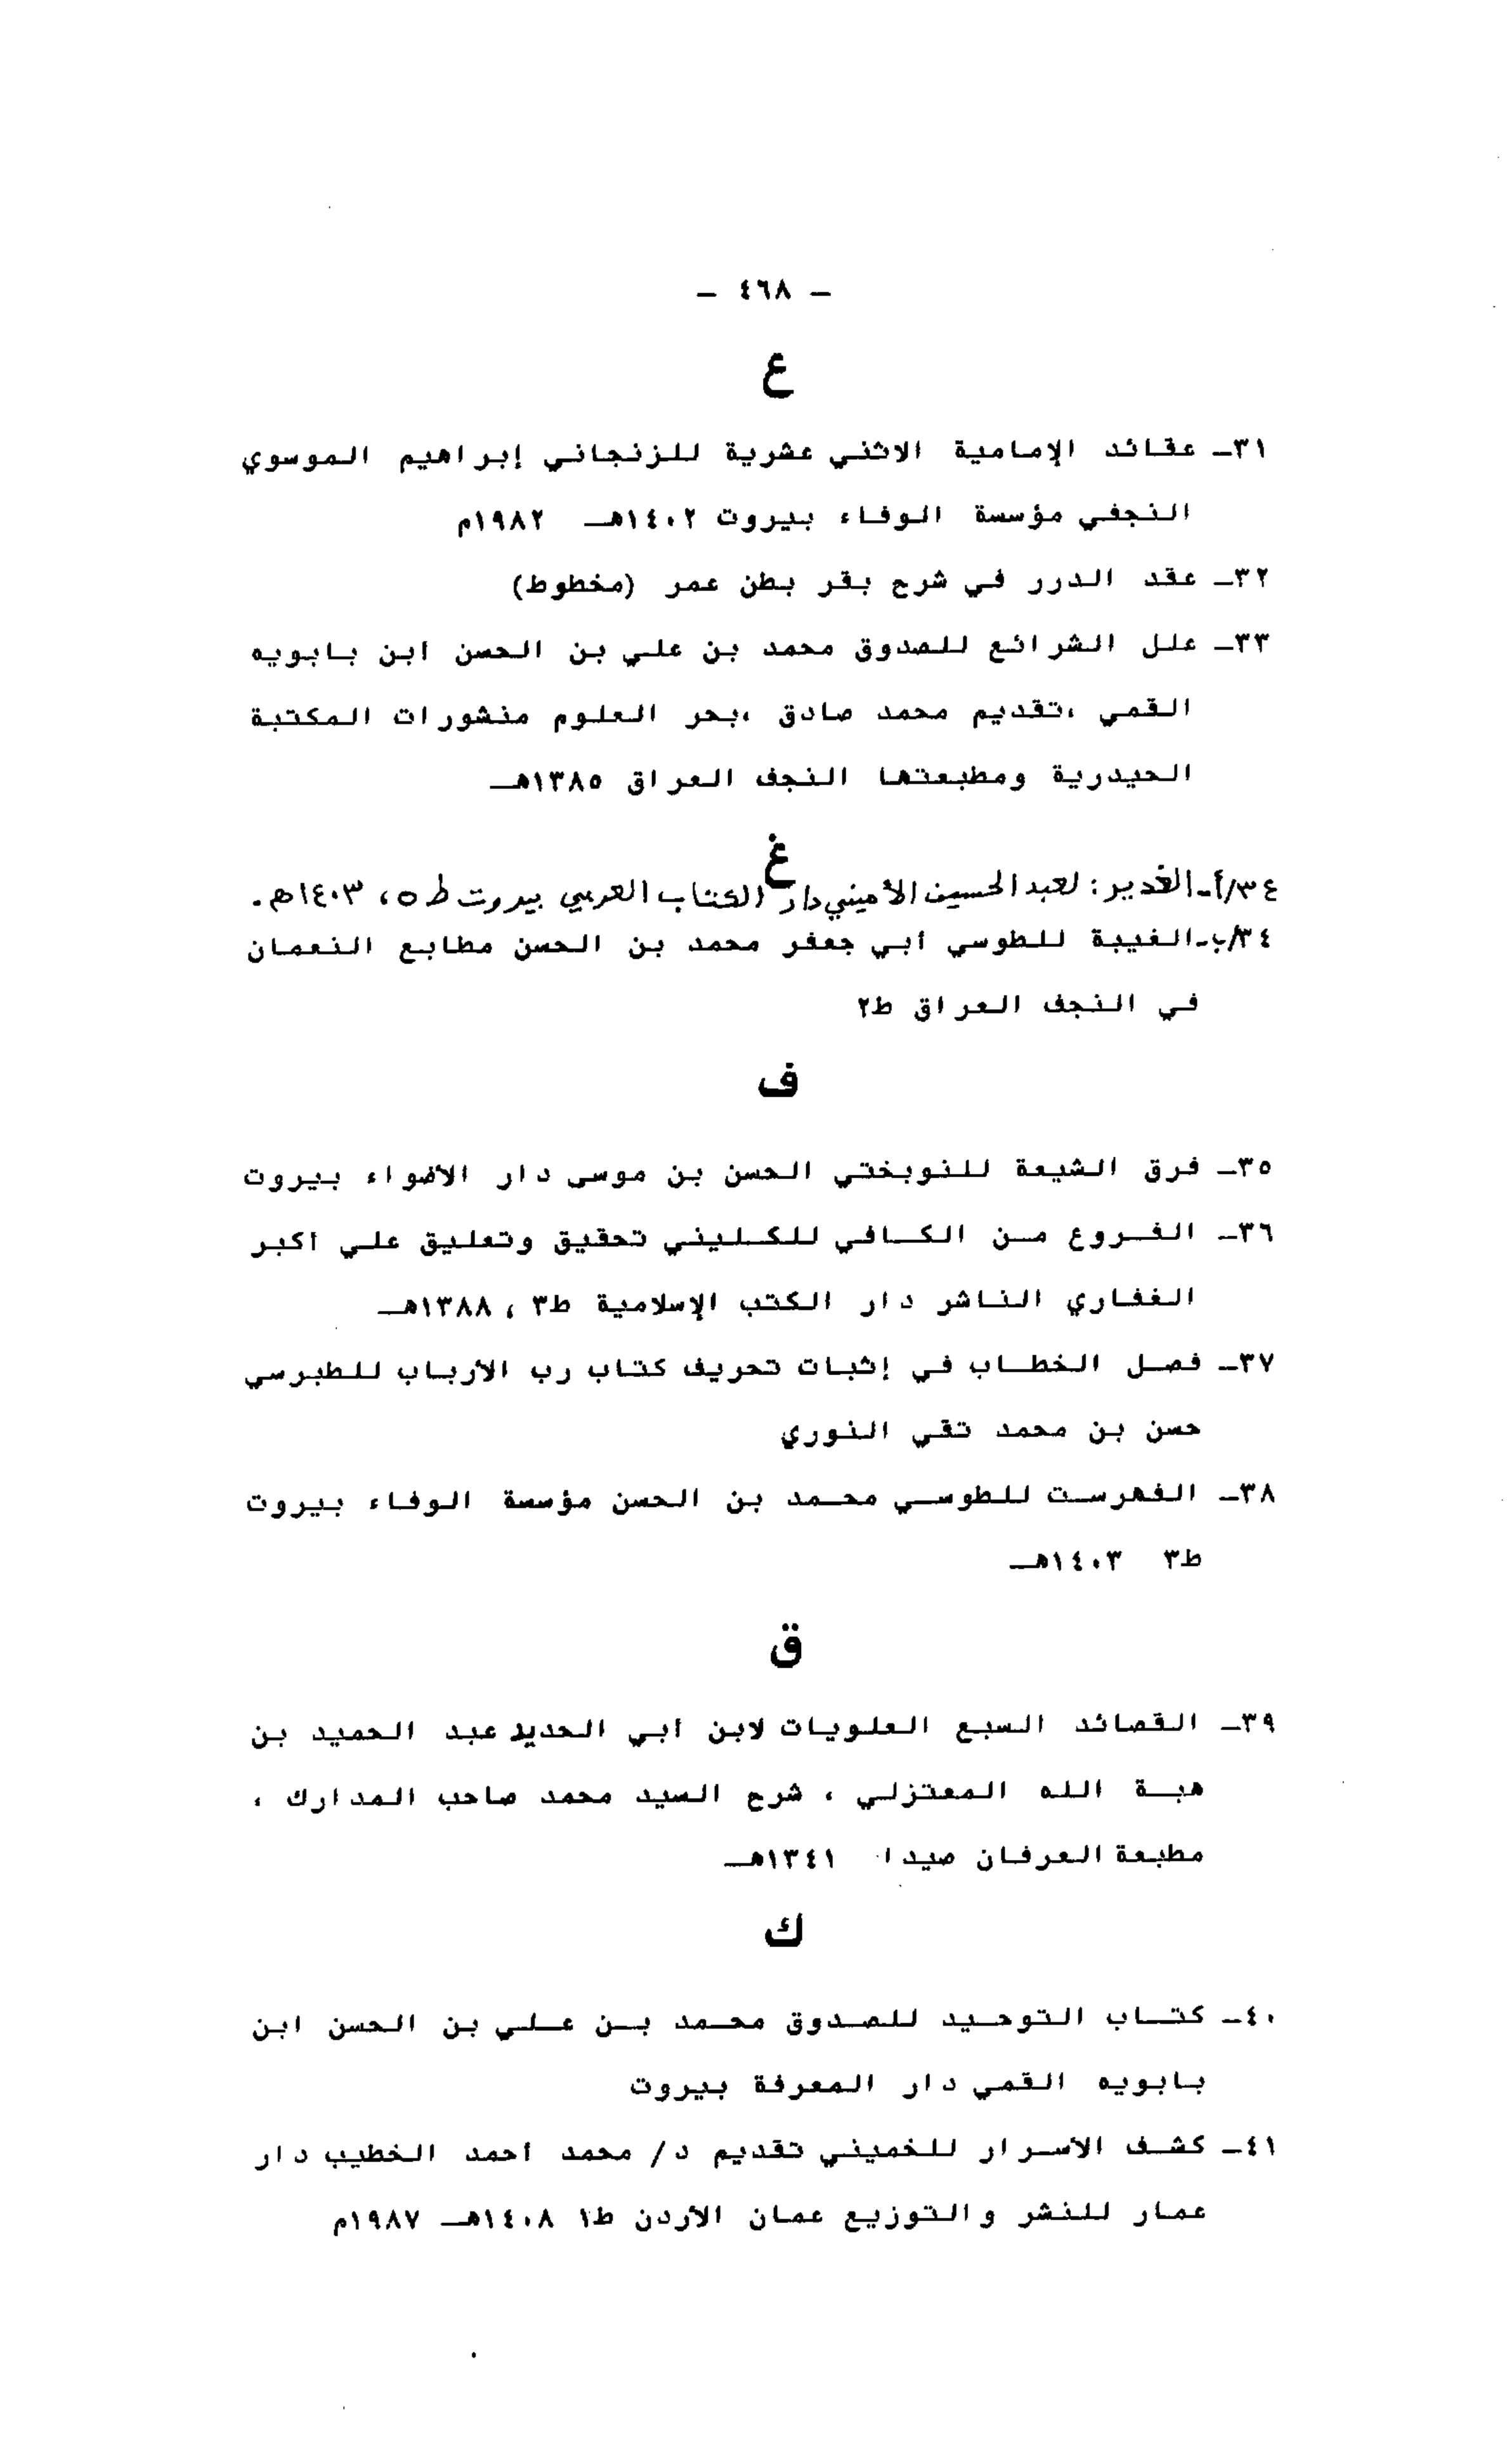 - ٤٦٨ -
ع
٣١- عقائد الإمامية الاثني عشرية للزنجاني إبراهيم الموسوي
النجفي مؤسسة الوفاء بيروت ١٤٠٢هـ ١٩٨٢م
٣٢- عقد الدرر في شرح بقر بطن عمر (مخطوط)
٣٣- علل الشرائع للصدوق محمد بن علي بن الحسن ابن بابويه
القمي ،تقديم محمد صادق ،بحر العلوم منشورات المكتبة
الحيدرية ومطبعتها النجف العراق ١٣٨٥هـ
غ
٣٤/أ-الغدير: لعبد الحسين الأميني دار الكتاب العربي بيروت ط٥، ١٤٠٣هـ.
٣٤/ب-الغيبة للطوسي أبي جعفر محمد بن الحسن مطابع النعمان
في النجف العراق ط٢
ف
٣٥- فرق الشيعة للنوبختي الحسن بن موسى دار الأضواء بيروت
٣٦- الفروع من الكافي للكليني تحقيق وتعليق علي أكبر
الغفاري الناشر دار الكتب الإسلامية ط٣ ، ١٣٨٨هـ
٣٧- فصل الخطاب في إثبات تحريف كتاب رب الأرباب للطبرسي
حسن بن محمد تقي النوري
٣٨- الفهرست للطوسي محمد بن الحسن مؤسسة الوفاء بيروت
ط٣ ١٤٠٣هـ
ق
٣٩- القصائد السبع العلويات لابن أبي الحديد عبد الحميد بن
هبة الله المعتزلي ، شرح السيد محمد صاحب المدارك ،
مطبعة العرفان صيدا ١٣٤١هـ
ك
٤٠- كتاب التوحيد للصدوق محمد بن علي بن الحسن ابن
بابويه القمي دار المعرفة بيروت
٤١- كشف الأسرار للخميني تقديم د/ محمد أحمد الخطيب دار
عمار للنشر والتوزيع عمان الأردن ط١ ١٤٠٨هـ ١٩٨٧م